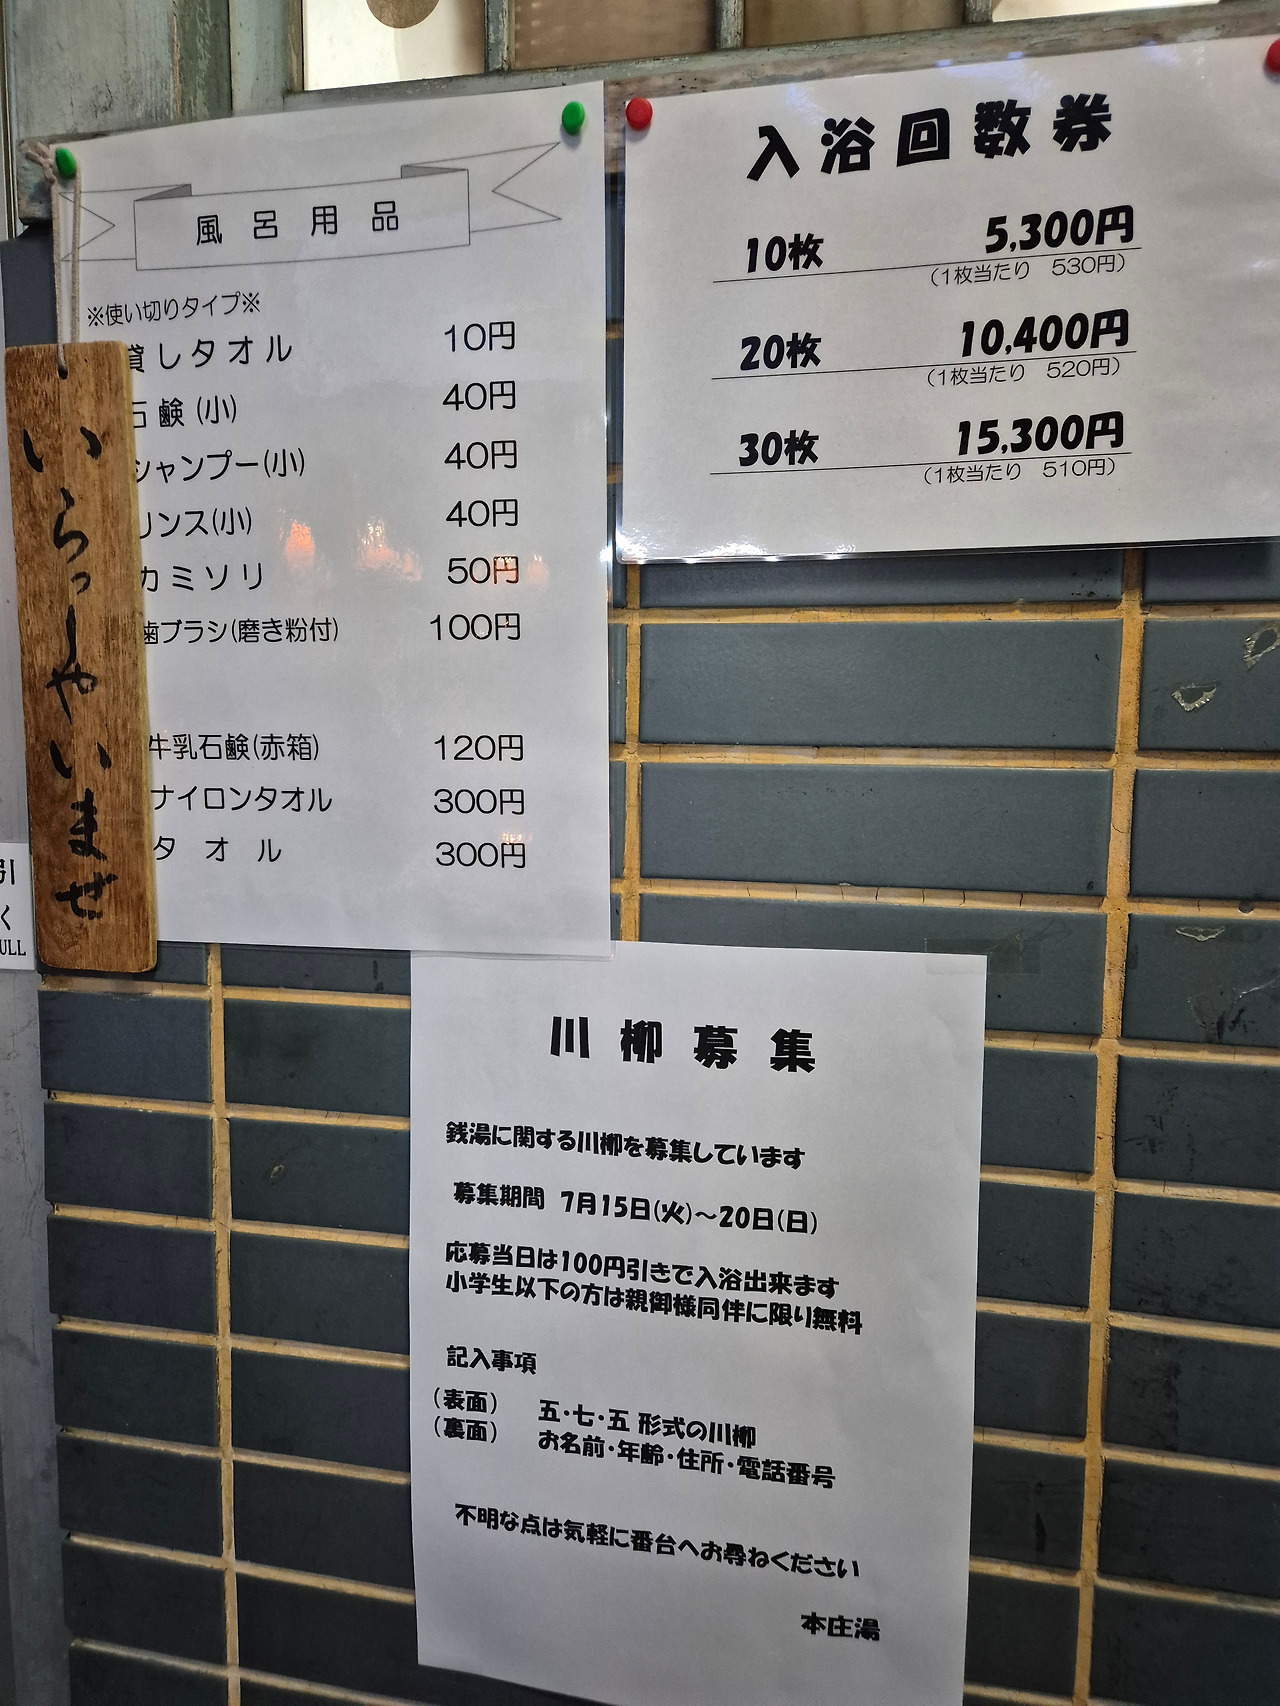 風呂用品
※使い切りタイプ※
貸しタオル 10円
石鹸(小) 40円
シャンプー(小) 40円
リンス(小) 40円
カミソリ 50円
歯ブラシ(磨き粉付) 100円
牛乳石鹸(赤箱) 120円
ナイロンタオル 300円
タオル 300円
いらっしゃいませ
引
く
ULL
入浴回数券
10枚 5,300円
(1枚当たり 530円)
20枚 10,400円
(1枚当たり 520円)
30枚 15,300円
(1枚当たり 510円)
川柳募集
銭湯に関する川柳を募集しています
募集期間 7月15日(火)~20日(日)
応募当日は100円引きで入浴出来ます
小学生以下の方は親御様同伴に限り無料
記入事項
(表面) 五・七・五 形式の川柳
(裏面) お名前・年齢・住所・電話番号
不明な点は気軽に番台へお尋ねください
本庄湯